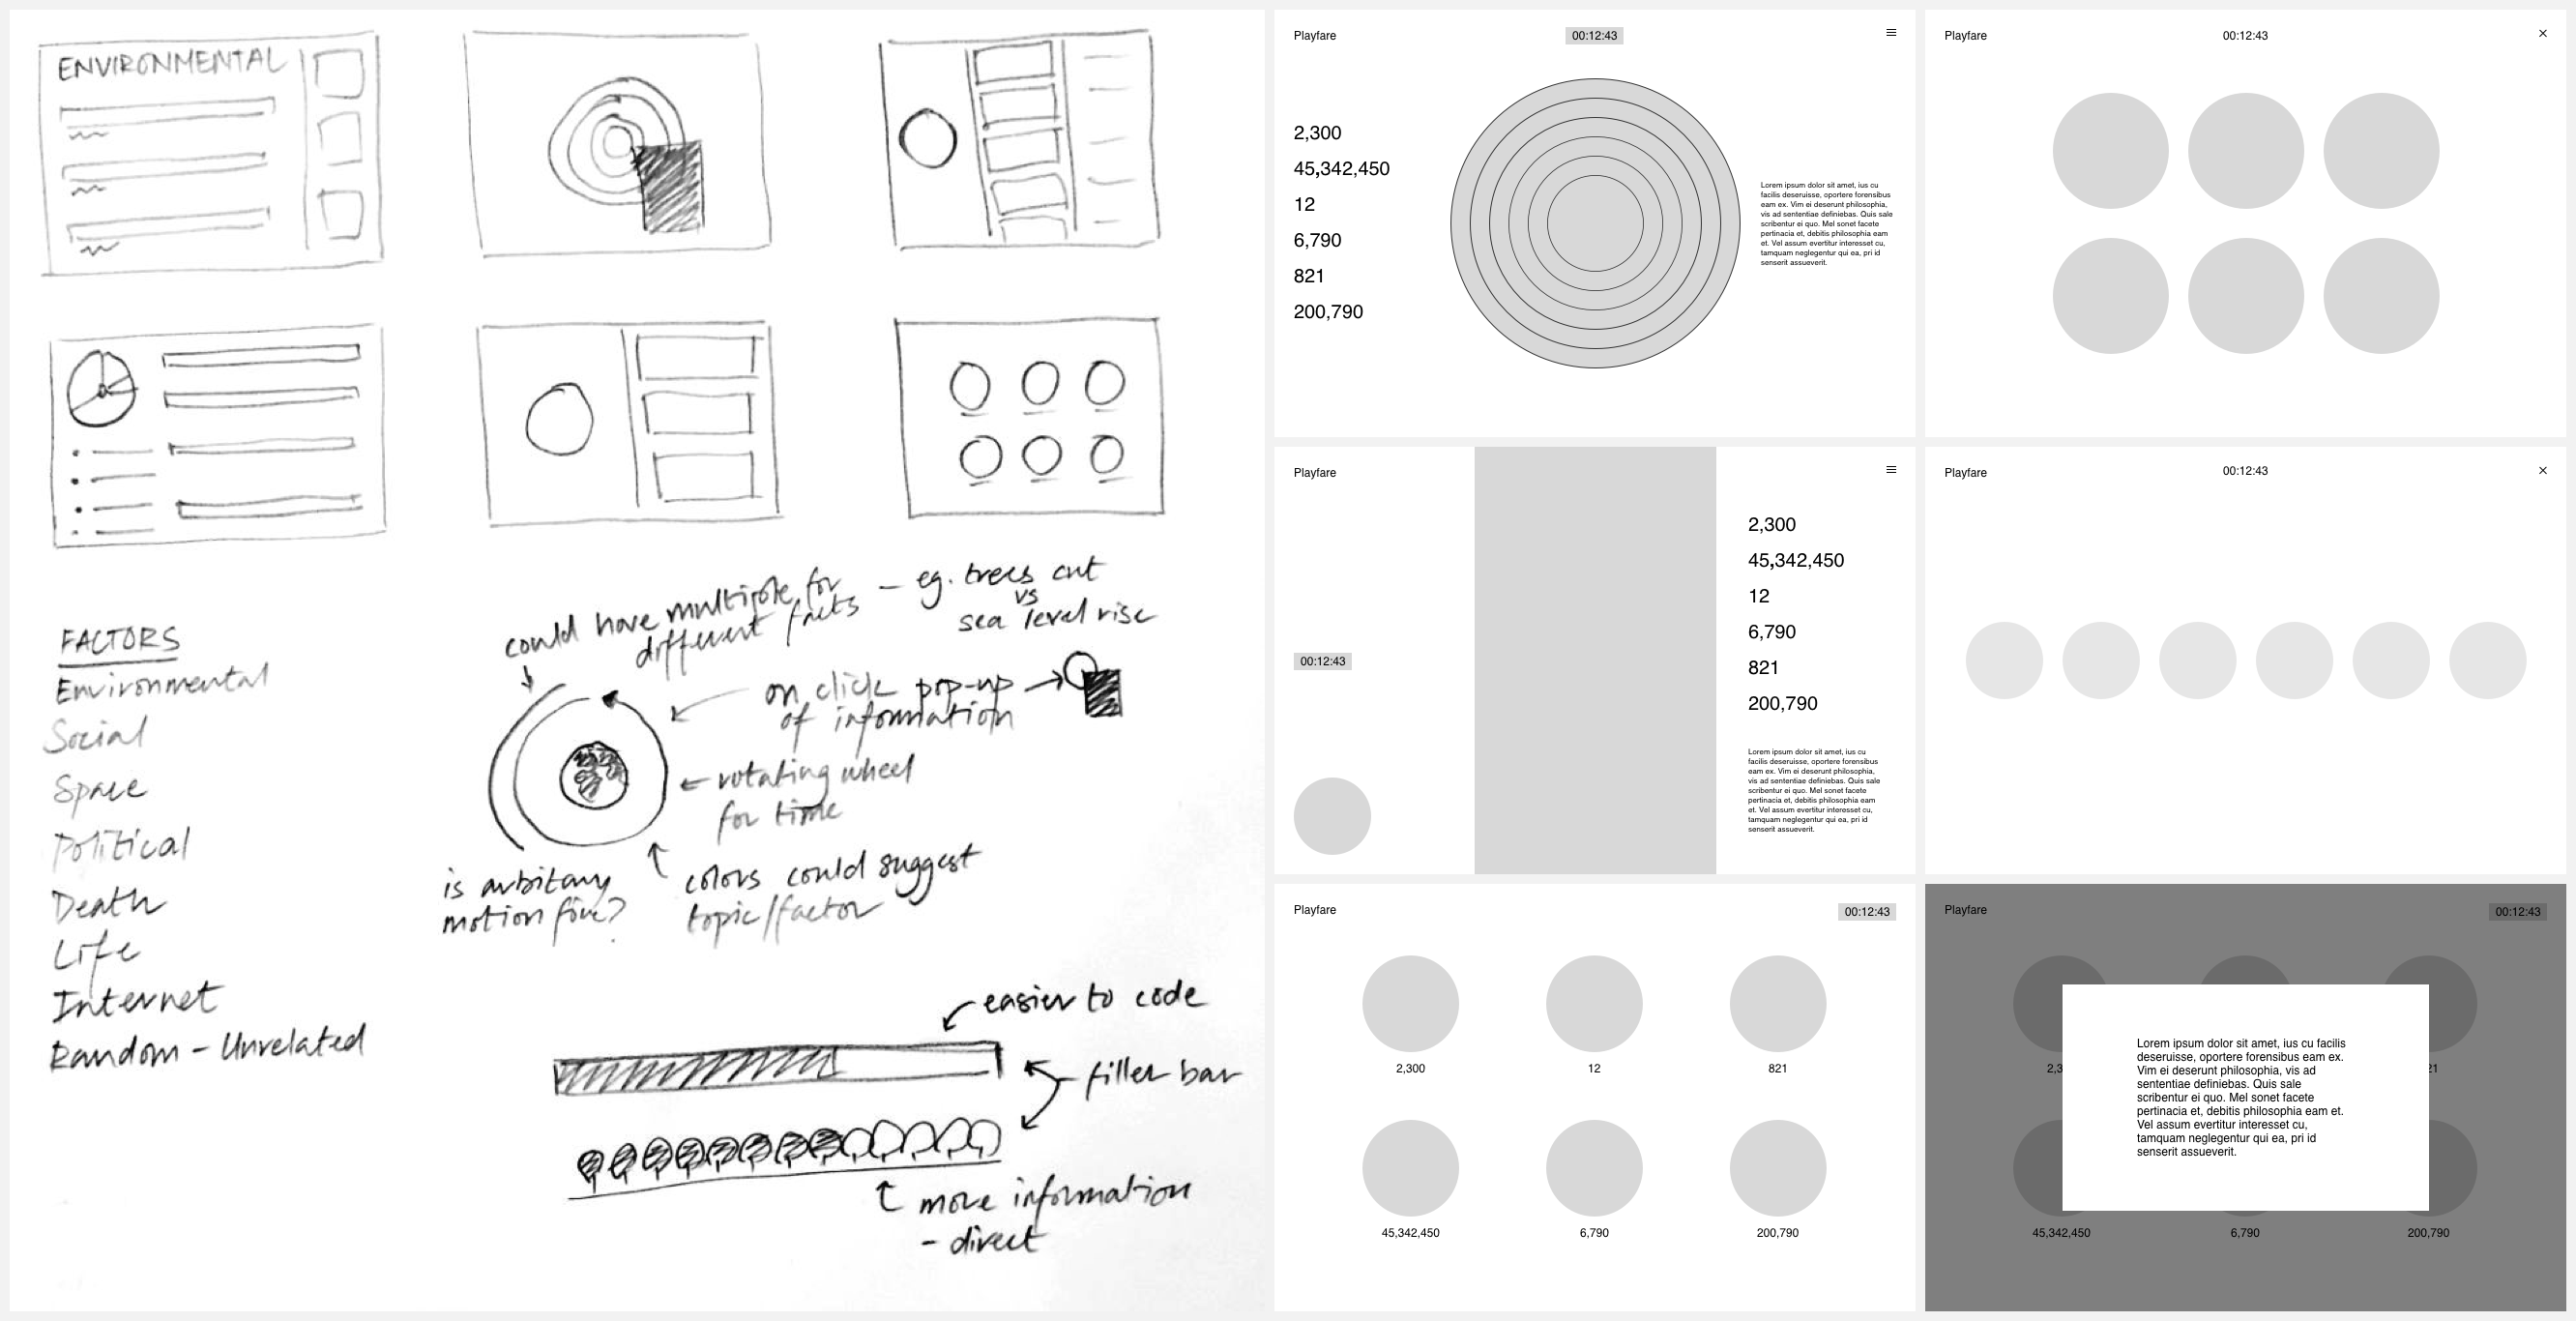 ENVIRONMENTAL
could have multiple for
different facts
– eg. trees cut
vs
sea level rise
FACTORS
Environmental
Social
Space
Political
Death
Life
Internet
Random – Unrelated
on click pop-up
of information
rotating wheel
for time
is arbitary
motion fine?
colors could suggest
topic/factor
easier to code
filler bar
more information
- direct
Playfare
00:12:43
2,300
45,342,450
12
6,790
821
200,790
Lorem ipsum dolor sit amet, ius cu
facilis deseruisse, oportere forensibus
eam ex. Vim ei deserunt philosophia,
vis ad sententiae definiebas. Quis sale
scribentur ei quo. Mel sonet facete
pertinacia et, debitis philosophia eam
et. Vel assum evertitur interesset cu,
tamquam neglegentur qui ea, pri id
senserit assueverit.
Playfare
00:12:43
Playfare
00:12:43
2,300
45,342,450
12
6,790
821
200,790
Lorem ipsum dolor sit amet, ius cu
facilis deseruisse, oportere forensibus
eam ex. Vim ei deserunt philosophia,
vis ad sententiae definiebas. Quis sale
scribentur ei quo. Mel sonet facete
pertinacia et, debitis philosophia eam
et. Vel assum evertitur interesset cu,
tamquam neglegentur qui ea, pri id
senserit assueverit.
Playfare
00:12:43
Playfare
00:12:43
2,300
12
821
45,342,450
6,790
200,790
Playfare
00:12:43
2,3
21
Lorem ipsum dolor sit amet, ius cu facilis
deseruisse, oportere forensibus eam ex.
Vim ei deserunt philosophia, vis ad
sententiae definiebas. Quis sale
scribentur ei quo. Mel sonet facete
pertinacia et, debitis philosophia eam et.
Vel assum evertitur interesset cu,
tamquam neglegentur qui ea, pri id
senserit assueverit.
45,342,450
6,790
200,790